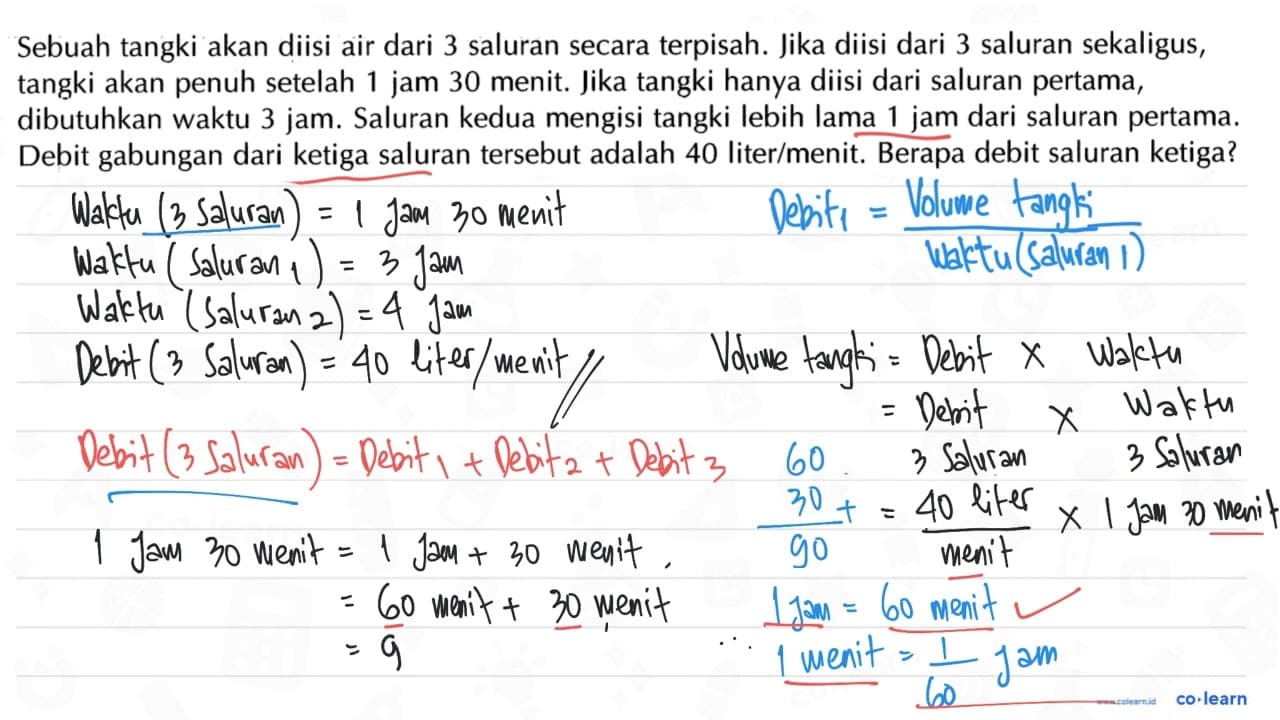 Sebuah tangki akan diisi air dari 3 saluran secara terpisah. Jika diisi dari 3 saluran sekaligus,
tangki akan penuh setelah 1 jam 30 menit. Jika tangki hanya diisi dari saluran pertama,
dibutuhkan waktu 3 jam. Saluran kedua mengisi tangki lebih lama 1 jam dari saluran pertama.
Debit gabungan dari ketiga saluran tersebut adalah 40 liter/menit. Berapa debit saluran ketiga?
Waktu (3 Saluran) = 1 Jam 30 menit
Waktu (Saluran 1) = 3 Jam
Waktu (Saluran 2) = 4 Jam
Debit (3 Saluran) = 40 liter/menit
Debit (3 Saluran) = Debit 1 + Debit 2 + Debit 3
1 Jam 30 menit = 1 Jam + 30 menit
= 60 menit + 30 menit
= 9
Debit 1 = Volume tangki
Waktu (Saluran 1)
Volume tangki = Debit x Waktu
= Debit x Waktu
3 Saluran 3 Saluran
= 40 liter x 1 Jam 30 menit
menit
60
30 +
90
1 Jam = 60 menit ✓
∴ 1 menit = 1 Jam
60
www.colearn.id
co•learn